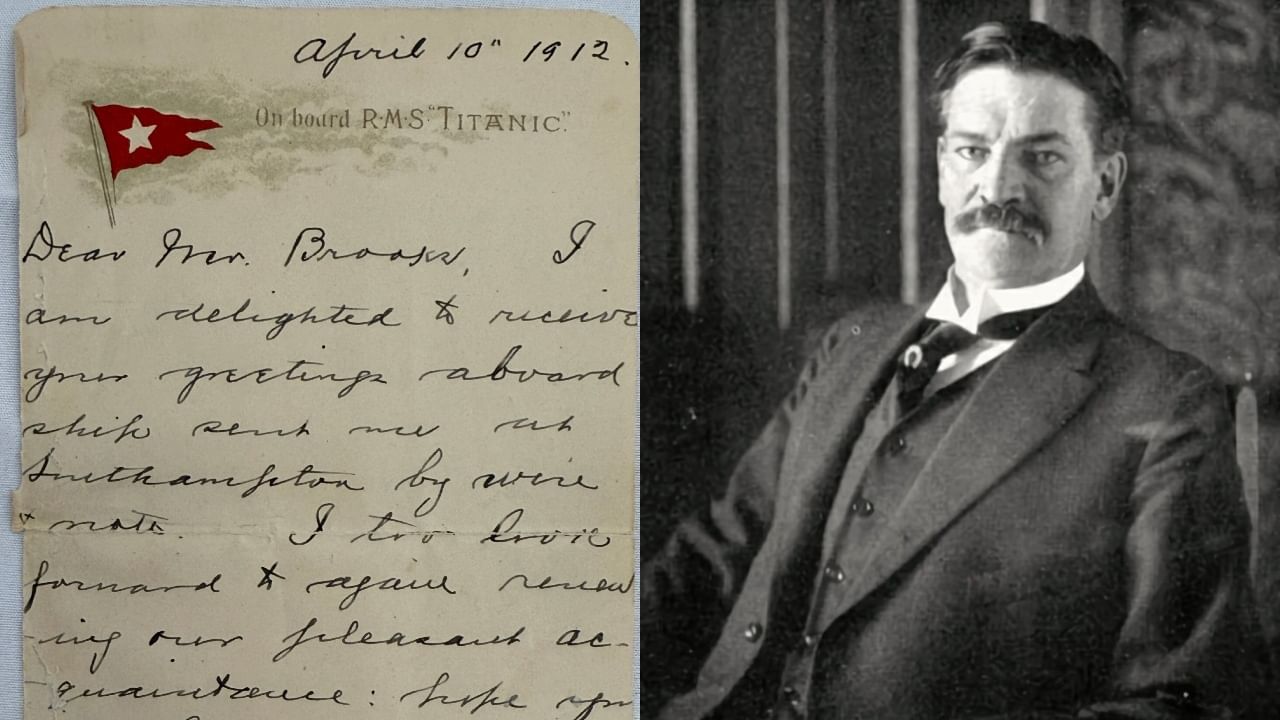 April 10" 1912.
On board R·M·S "TITANIC."
Dear Mr. Brooks, I
am delighted to receive
your greetings aboard
ship sent me at
Southampton by wire
& note. I too look
forward to again renew
-ing our pleasant ac-
quaintance: hope you